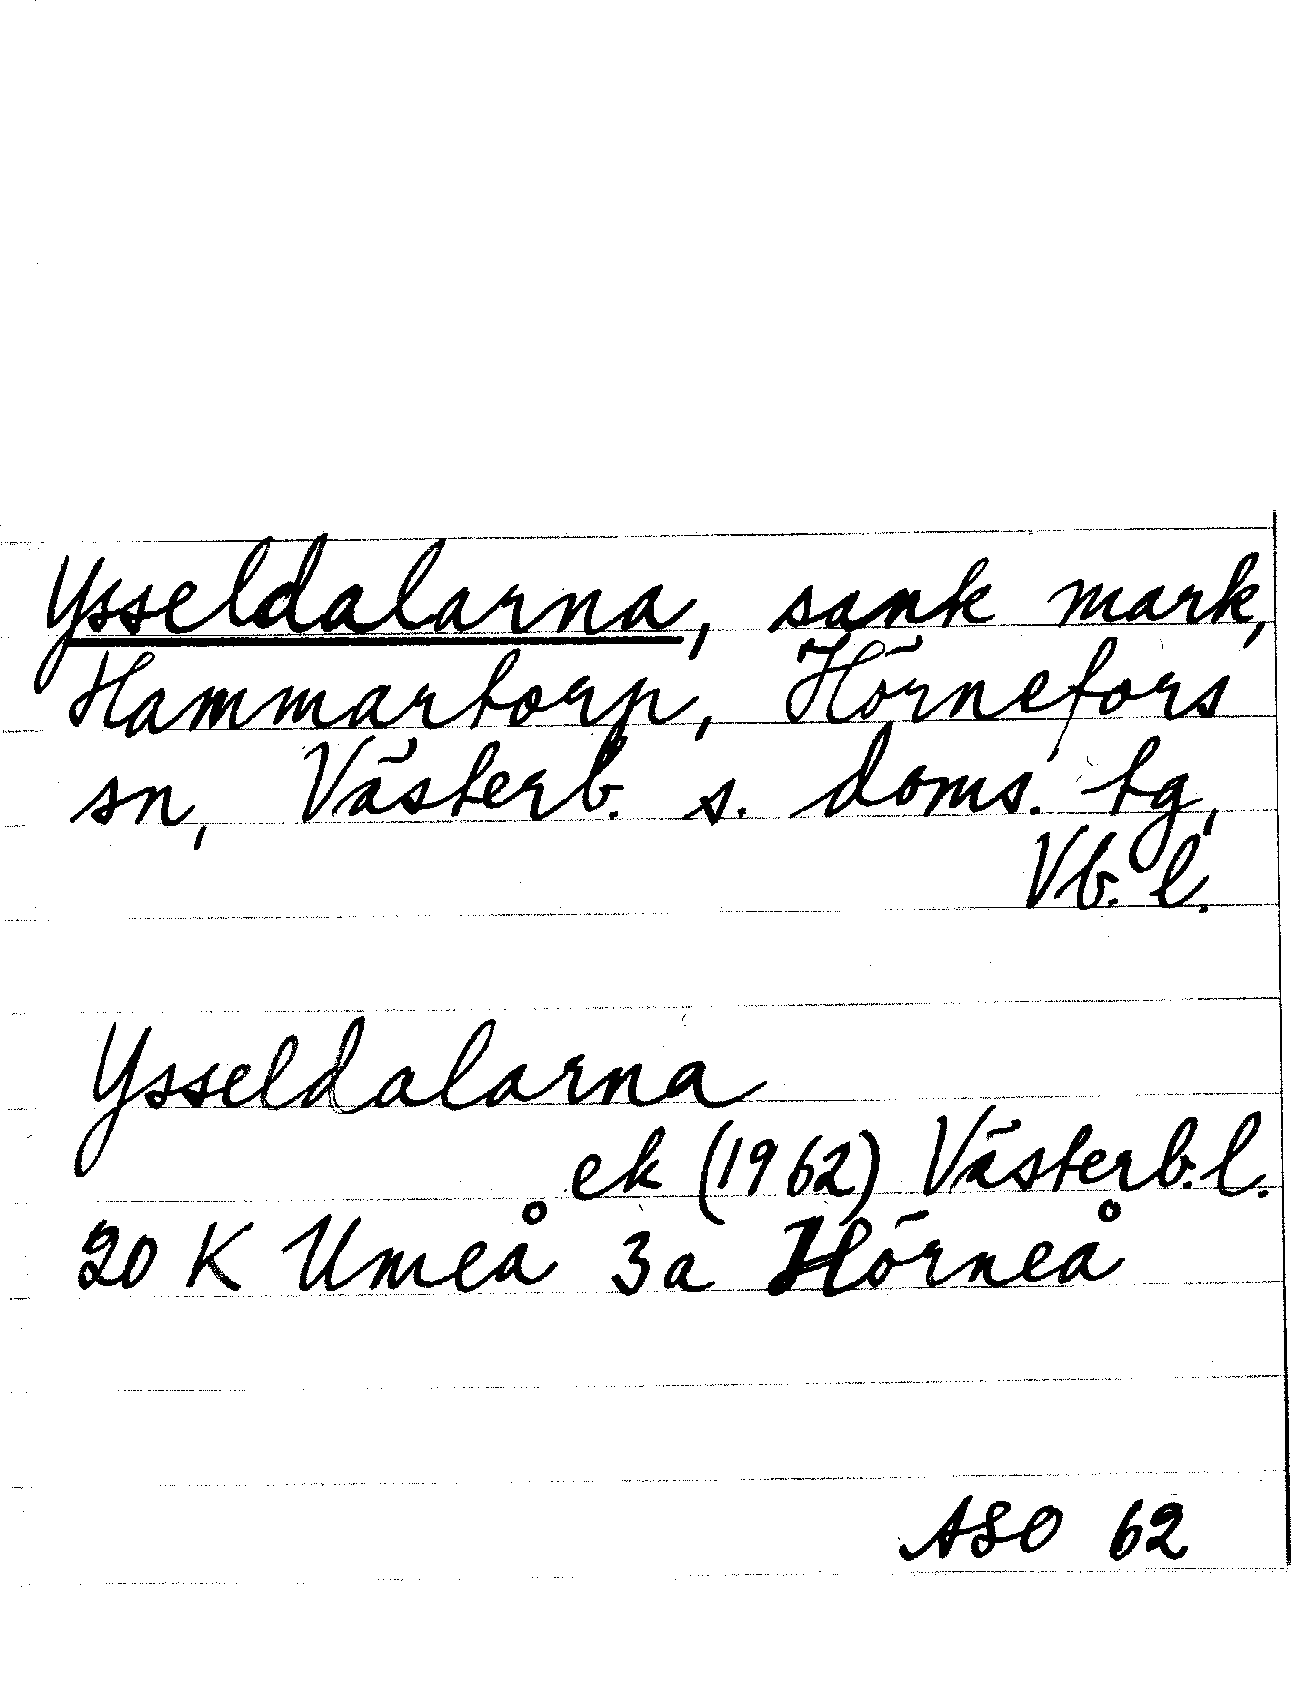 Ysseldalarna, sank mark,
Hammartorp, Hörnefors
sn, Västerb. s. doms. tg,
Vb. l.
Ysseldalarna
ek (1962) Västerb. l.
20 K Umeå 3a Hörneå
ASO 62